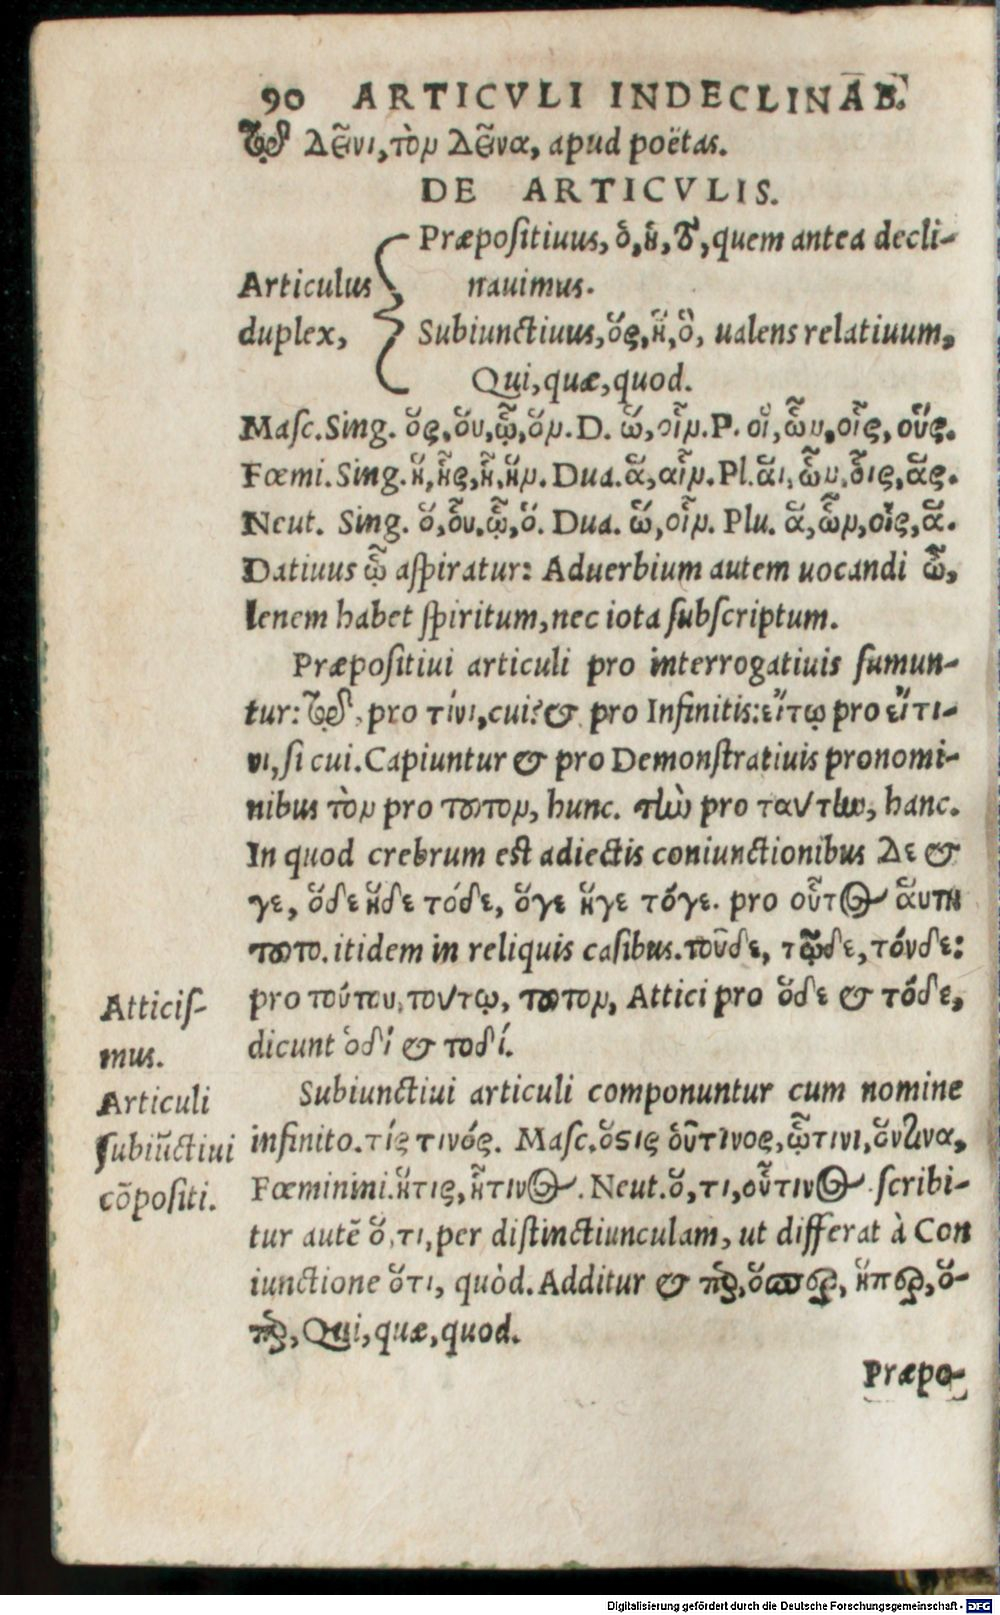 90 ARTICVLI INDECLINAB.
τῷ δεῖνι, τὸν δεῖνα, apud poëtas.
DE ARTICVLIS.
Præpositiuus, ὁ, ἡ, τὸ, quem antea decli-
Articulus nauimus.
duplex, Subiunctiuus, ὅς, ἥ, ὅ, ualens relatiuum,
Qui, quæ, quod.
Masc. Sing. ὅς, οὗ, ᾧ, ὅν. D. ὥ, οἷν. P. οἵ, ὧν, οἷς, οὕς.
Fœmi. Sing. ἥ, ἧς, ᾗ, ἥν. Dua. ἅ, αἷν. Pl. αἵ, ὧν, αἷς, ἅς.
Neut. Sing. ὅ, οὗ, ᾧ, ὅ. Dua. ὥ, οἷν. Plu. ἅ, ὧν, οἷς, ἅ.
Datiuus ᾧ aspiratur: Aduerbium autem uocandi ὦ,
lenem habet spiritum, nec iota subscriptum.
Præpositiui articuli pro interrogatiuis sumun-
tur: τῷ, pro τίνι, cui? & pro Infinitis: εἴτῳ pro εἴτι-
νι, si cui. Capiuntur & pro Demonstratiuis pronomi-
nibus τὸν pro τοῦτον, hunc. τὴν pro ταύτην, hanc.
In quod crebrum est adiectis coniunctionibus δε &
γε, ὅδε ἥδε τόδε, ὅγε ἥγε τόγε. pro οὗτος αὕτη
τοῦτο. itidem in reliquis casibus. τοῦδε, τῷδε, τόνδε:
Atticis- pro τούτου, τούτῳ, τοῦτον, Attici pro ὅδε & τόδε,
mus. dicunt ὁδί & τοδί.
Articuli Subiunctiui articuli componuntur cum nomine
subiūctiui infinito. τίς τινός. Masc. ὅστις οὗτινος, ᾧτινι, ὅντινα,
cōpositi. Fœminini. ἥτις, ἧτινος. Neut. ὅ, τι, οὗτινος. scribi-
tur autē ὅ, τι, per distinctiunculam, ut differat à Con
iunctione ὅτι, quòd. Additur & πὲρ, ὅσπερ, ἥπερ, ὅ-
περ, Qui, quæ, quod.
Præpo-
Digitalisierung gefördert durch die Deutsche Forschungsgemeinschaft - DFG